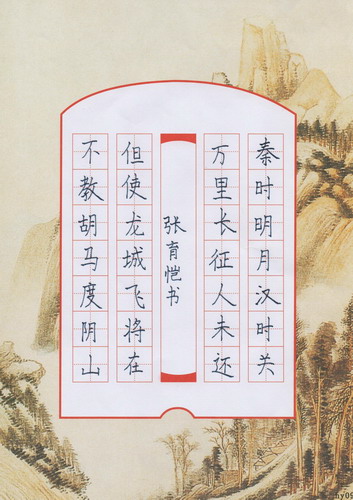 秦时明月汉时关
万里长征人未还
张育恺书
但使龙城飞将在
不教胡马度阴山